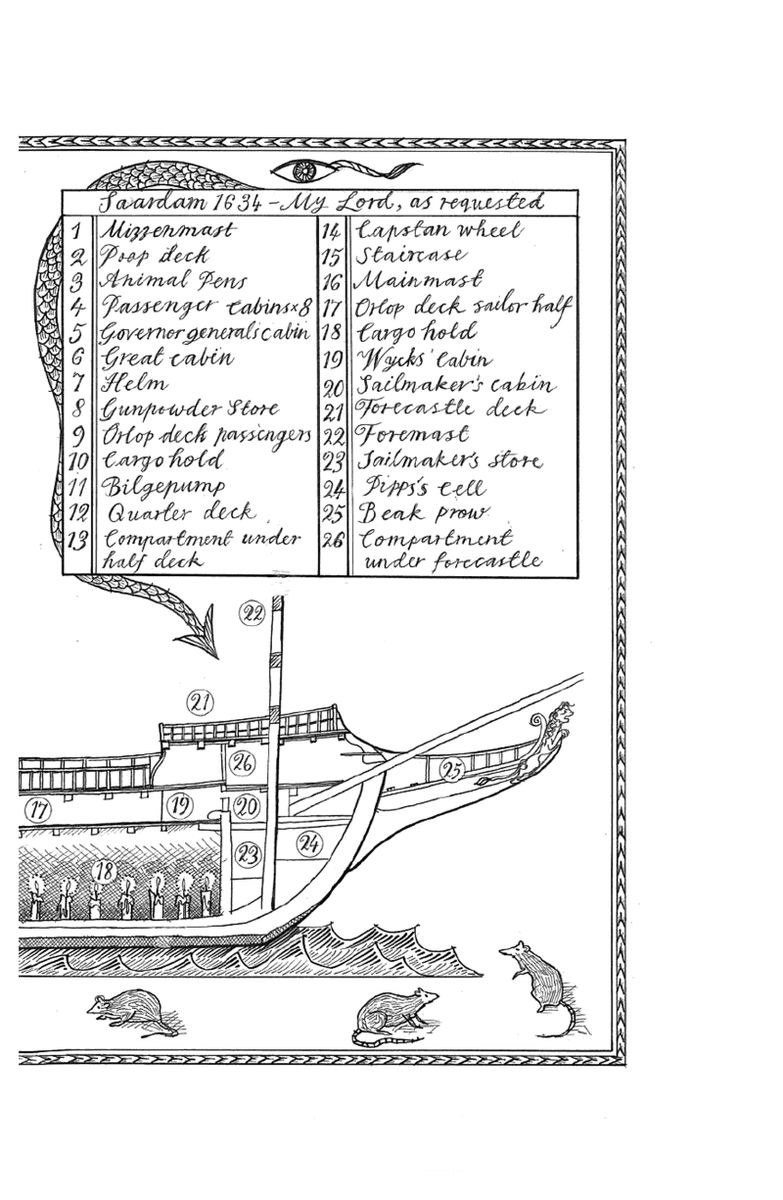 Saardam 1634 – My Lord, as requested
1 Mizzenmast
2 Poop deck
3 Animal Pens
4 Passenger cabins x 8
5 Governor general's cabin
6 Great cabin
7 Helm
8 Gunpowder Store
9 Orlop deck passengers
10 Cargo hold
11 Bilgepump
12 Quarter deck
13 Compartment under
half deck
14 Capstan wheel
15 Staircase
16 Mainmast
17 Orlop deck sailor half
18 Cargo hold
19 Wycks' Cabin
20 Sailmaker's cabin
21 Forecastle deck
22 Foremast
23 Sailmaker's store
24 Pipps's Cell
25 Beak prow
26 Compartment
under forecastle
22
21
26
25
17
19
20
24
23
18